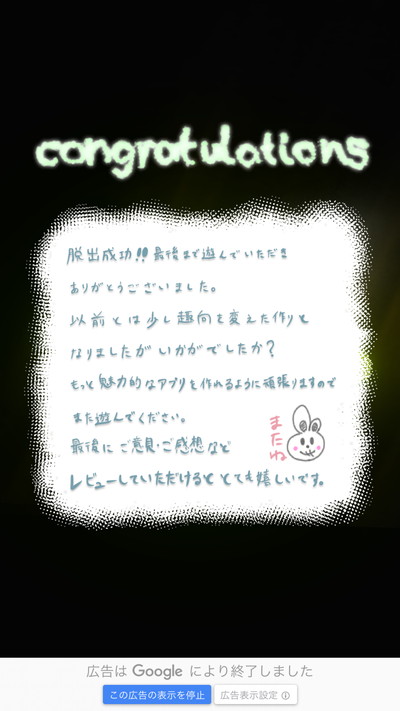 congratulations
脱出成功!! 最後まで遊んでいただき
ありがとうございました。
以前とは少し趣向を変えた作りと
なりましたがいかがでしたか?
もっと魅力的なアプリを作れるように頑張りますので
また遊んでください。
最後に ご意見・ご感想など
レビューしていただけるととても嬉しいです。
またね
広告は Google により終了しました
この広告の表示を停止
広告表示設定